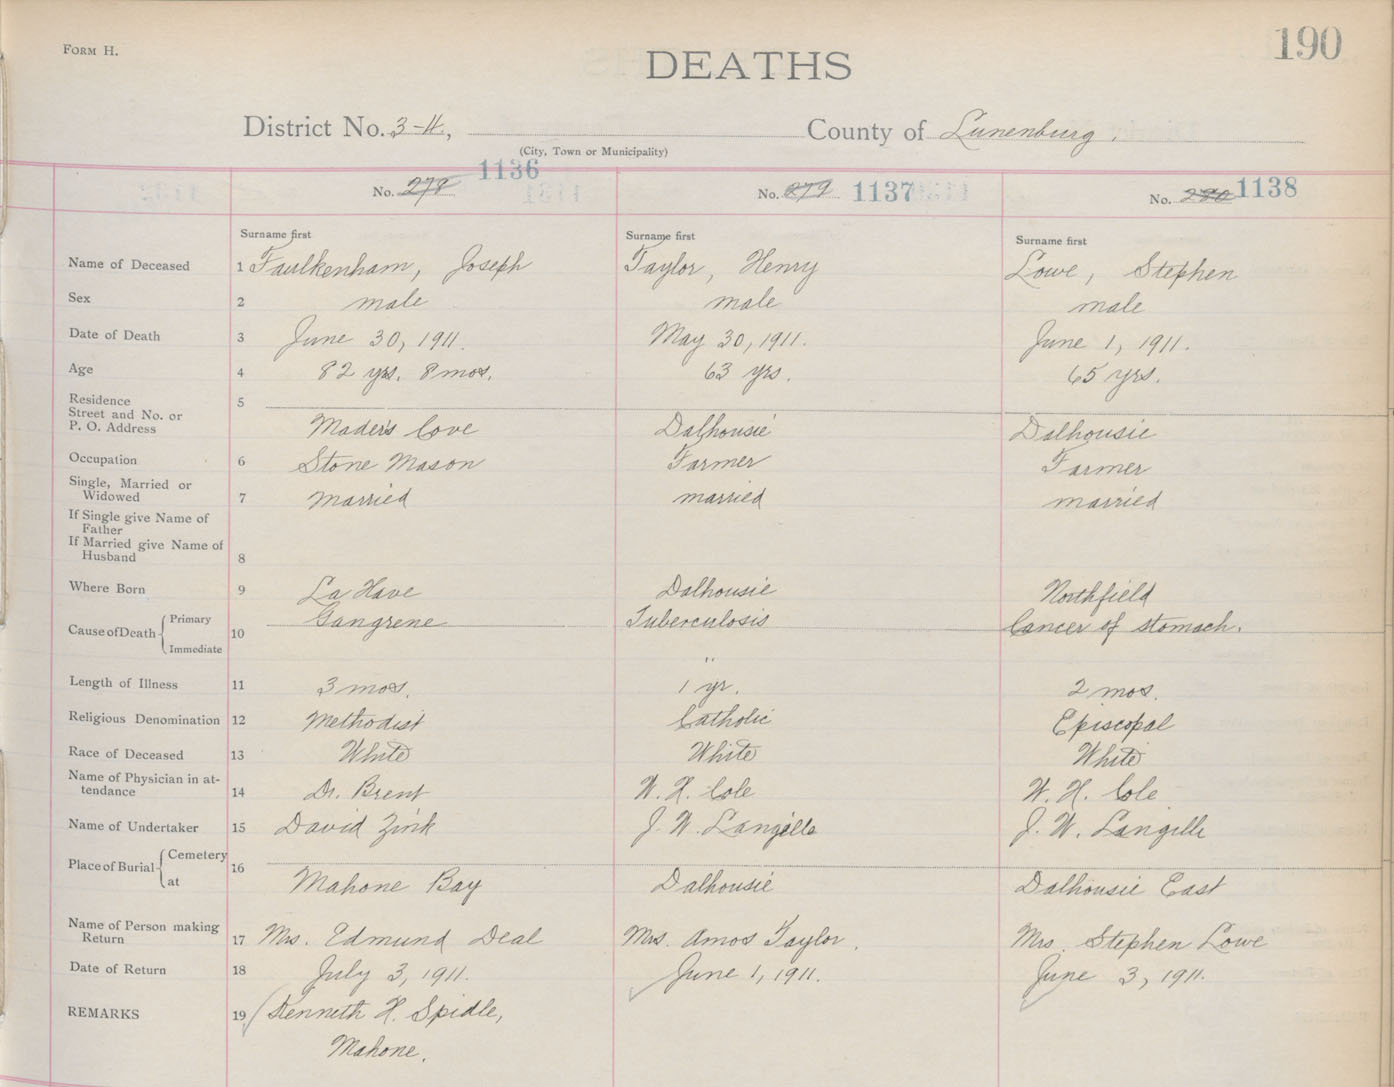 FORM H.
190
DEATHS
District No. 3-H, County of Lunenburg.
(City, Town or Municipality)
No. 278 1136
No. 279 1137
No. 280 1138
Surname first Surname first Surname first
Name of Deceased 1 Faulkenham, Joseph Taylor, Henry Lowe, Stephen
Sex 2 male male male
Date of Death 3 June 30, 1911. May 30, 1911. June 1, 1911.
Age 4 82 yrs. 8 mos. 63 yrs. 65 yrs.
Residence 5
Street and No. or
P. O. Address Mader's Cove Dalhousie Dalhousie
Occupation 6 Stone Mason Farmer Farmer
Single, Married or
Widowed 7 Married married married
If Single give Name of
Father
If Married give Name of
Husband 8
Where Born 9 La Have Dalhousie Northfield
Cause of Death Primary 10 Gangrene Tuberculosis Cancer of stomach.
Immediate "
Length of Illness 11 3 mos. 1 yr. 2 mos.
Religious Denomination 12 Methodist Catholic Episcopal
Race of Deceased 13 White White White
Name of Physician in at-
tendance 14 Dr. Brent W. H. Cole W. H. Cole
Name of Undertaker 15 David Zink J. W. Langille J. W. Langille
Place of Burial Cemetery 16
at Mahone Bay Dalhousie Dalhousie East
Name of Person making
Return 17 Mrs. Edmund Deal Mrs. Amos Taylor. Mrs. Stephen Lowe
Date of Return 18 July 3, 1911. June 1, 1911. June 3, 1911.
REMARKS 19 Kenneth H. Spidle,
Mahone.